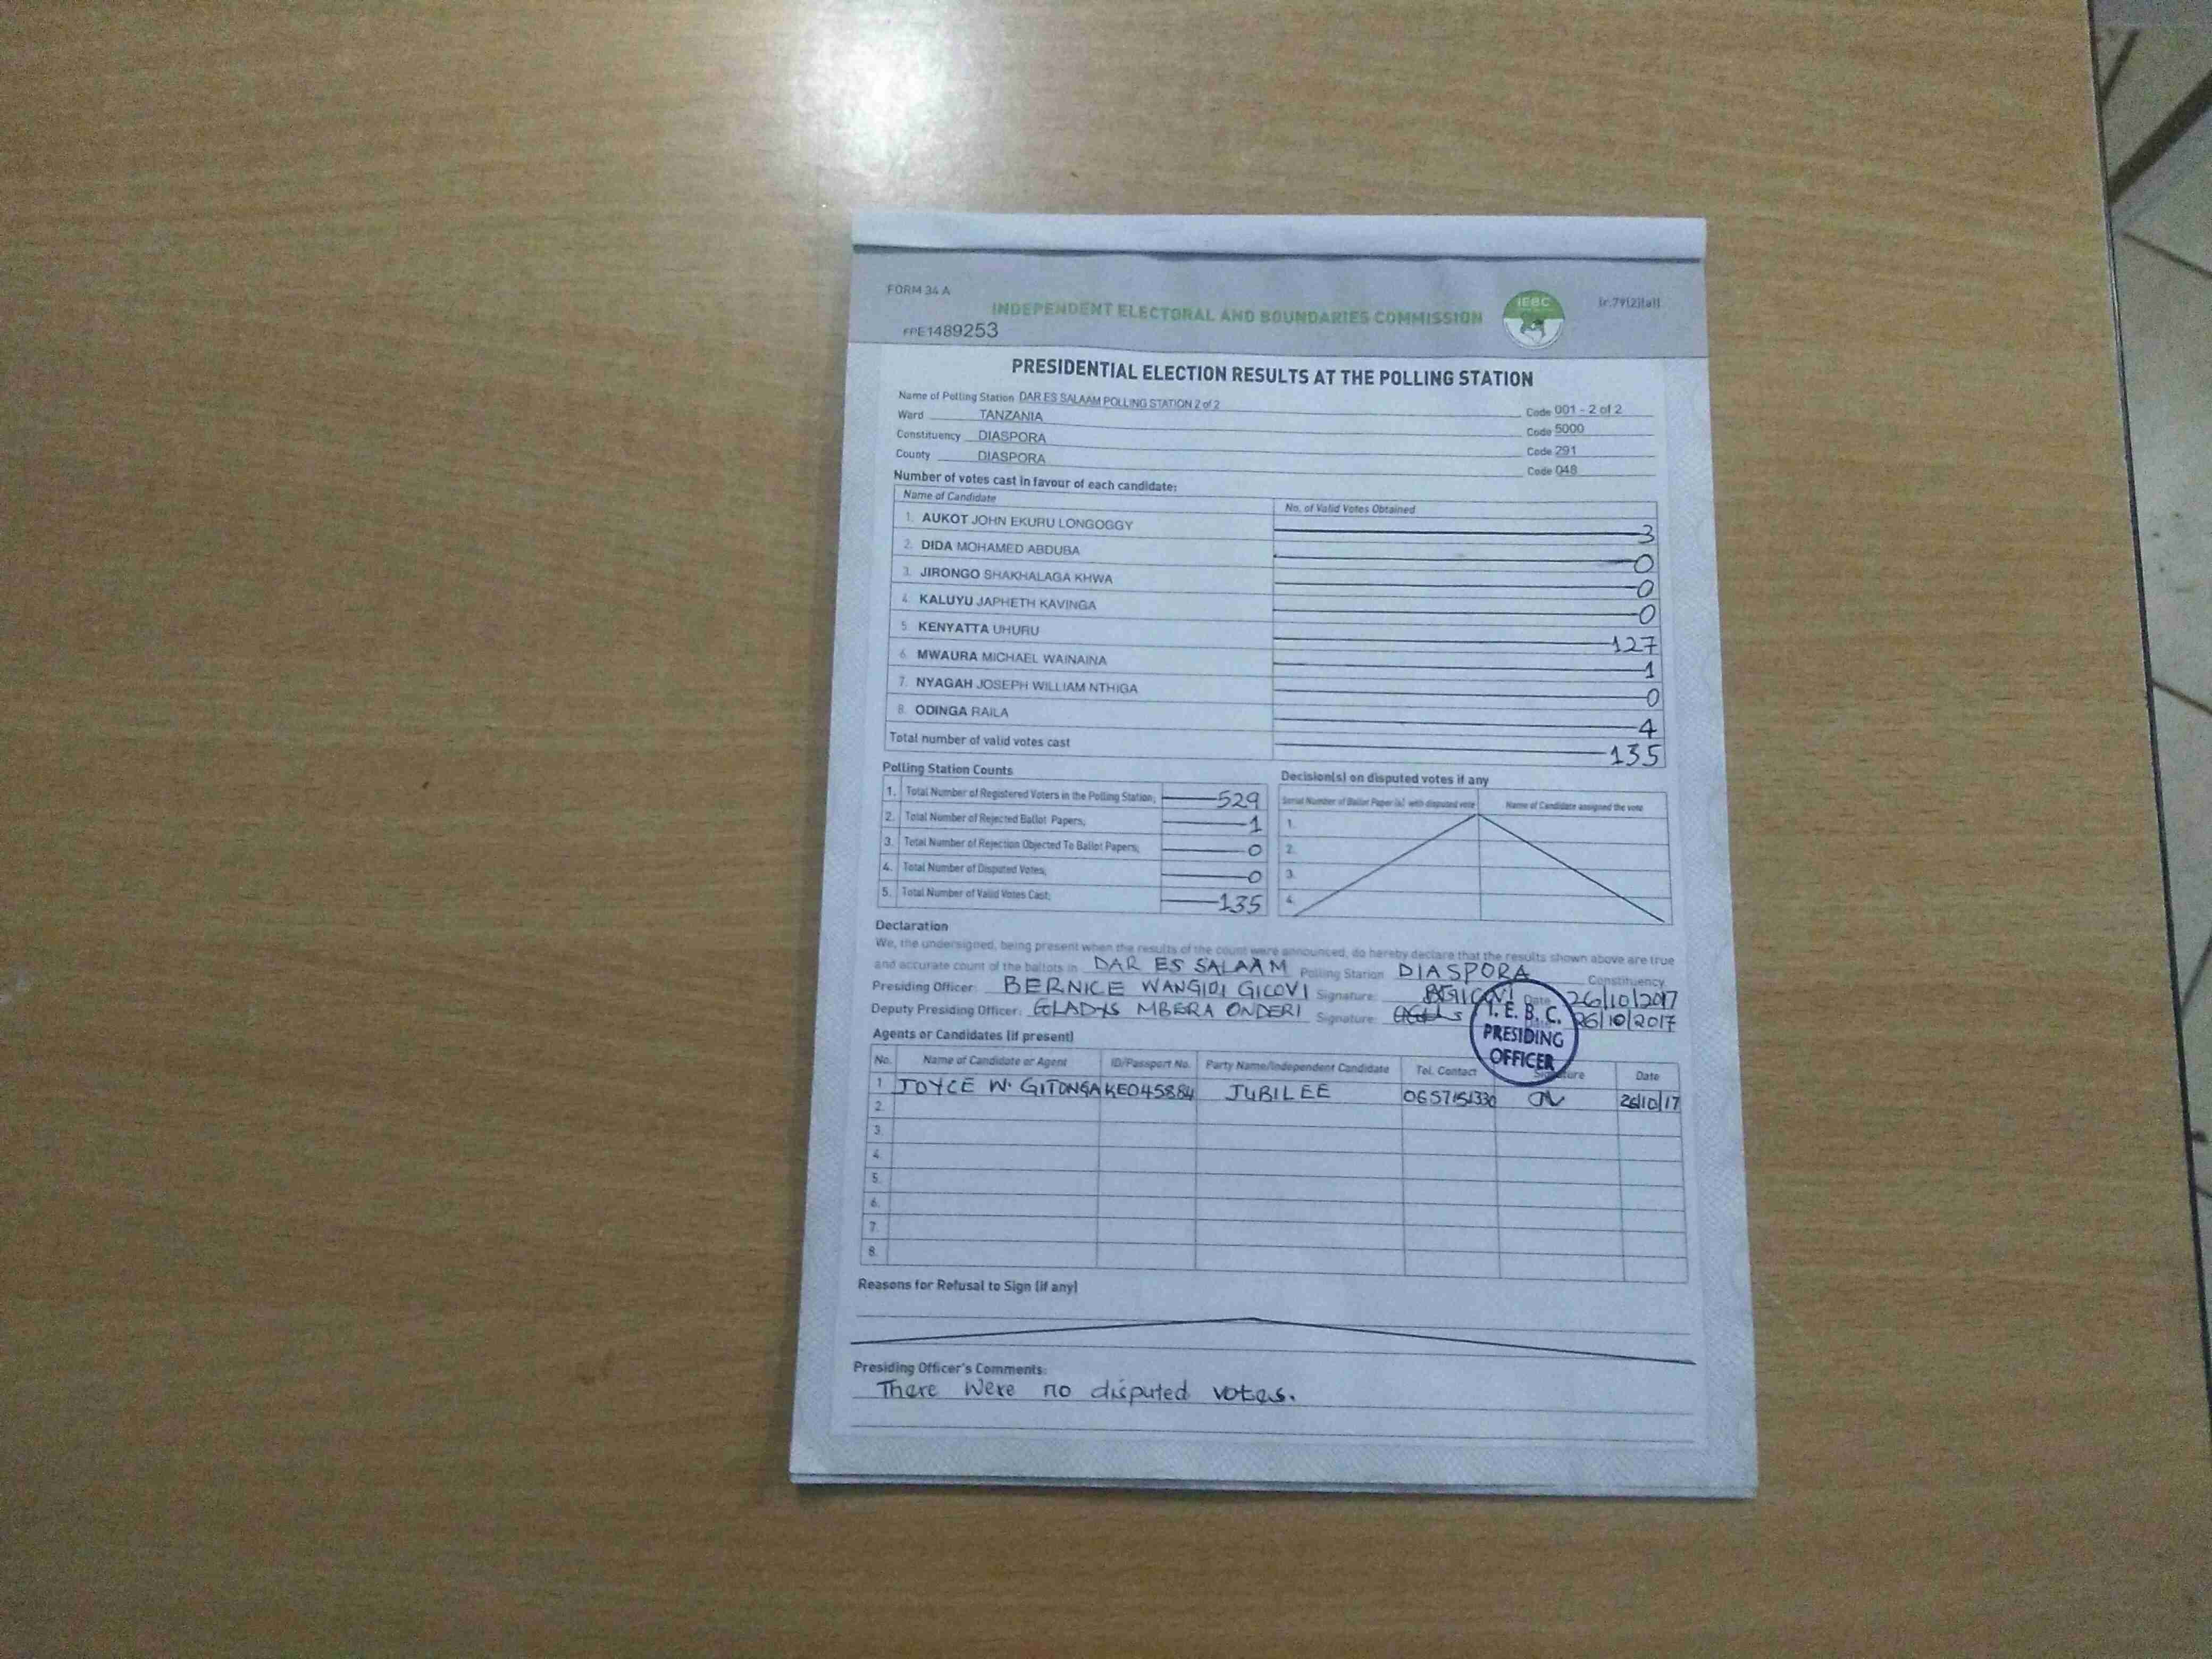 FORM 34 A
INDEPENDENT ELECTORAL AND BOUNDARIES COMMISSION
IEBC
(r.79(2)(a))
FPE1489253
PRESIDENTIAL ELECTION RESULTS AT THE POLLING STATION
Name of Polling Station DAR ES SALAAM POLLING STATION 2 of 2 Code 001 - 2 of 2
Ward TANZANIA Code 5000
Constituency DIASPORA Code 291
County DIASPORA Code 048
Number of votes cast in favour of each candidate:
Name of Candidate No. of Valid Votes Obtained
1. AUKOT JOHN EKURU LONGOGGY 3
2. DIDA MOHAMED ABDUBA 0
3. JIRONGO SHAKHALAGA KHWA 0
4. KALUYU JAPHETH KAVINGA 0
5. KENYATTA UHURU 127
6. MWAURA MICHAEL WAINAINA 1
7. NYAGAH JOSEPH WILLIAM NTHIGA 0
8. ODINGA RAILA 4
Total number of valid votes cast 135
Polling Station Counts
1. Total Number of Registered Voters in the Polling Station; 529
2. Total Number of Rejected Ballot Papers; 1
3. Total Number of Rejection Objected To Ballot Papers; 0
4. Total Number of Disputed Votes; 0
5. Total Number of Valid Votes Cast; 135
Decision(s) on disputed votes if any
Serial Number of Ballot Paper (s) with disputed vote Name of Candidate assigned the vote
1.
2.
3.
4.
Declaration
We, the undersigned, being present when the results of the count were announced, do hereby declare that the results shown above are true
and accurate count of the ballots in DAR ES SALAAM Polling Station DIASPORA Constituency
Presiding Officer: BERNICE WANGIDI GICOVI Signature: Date 26/10/2017
Deputy Presiding Officer: GLADYS MBERA ONDERI Signature: 26/10/2017
I. E. B. C.
PRESIDING
OFFICER
Agents or Candidates (if present)
No. Name of Candidate or Agent ID/Passport No. Party Name/Independent Candidate Tel. Contact Signature Date
1 JOYCE W. GITONGA KE045884 JUBILEE 0657151330 26/10/17
2.
3.
4.
5.
6.
7.
8.
Reasons for Refusal to Sign (if any)
Presiding Officer's Comments:
There were no disputed votes.